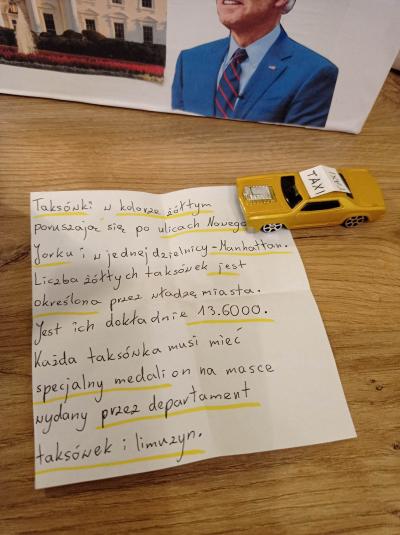 TAXI
Taksówki w kolorze żółtym
poruszając się po ulicach Nowego
Jorku i w jednej dzielnicy - Manhattan.
Liczba żółtych taksówek jest
określona przez władzę miasta.
Jest ich dokładnie 13.6000.
Każda taksówka musi mieć
specjalny medalion na masce
wydany przez departament
taksówek i limuzyn.